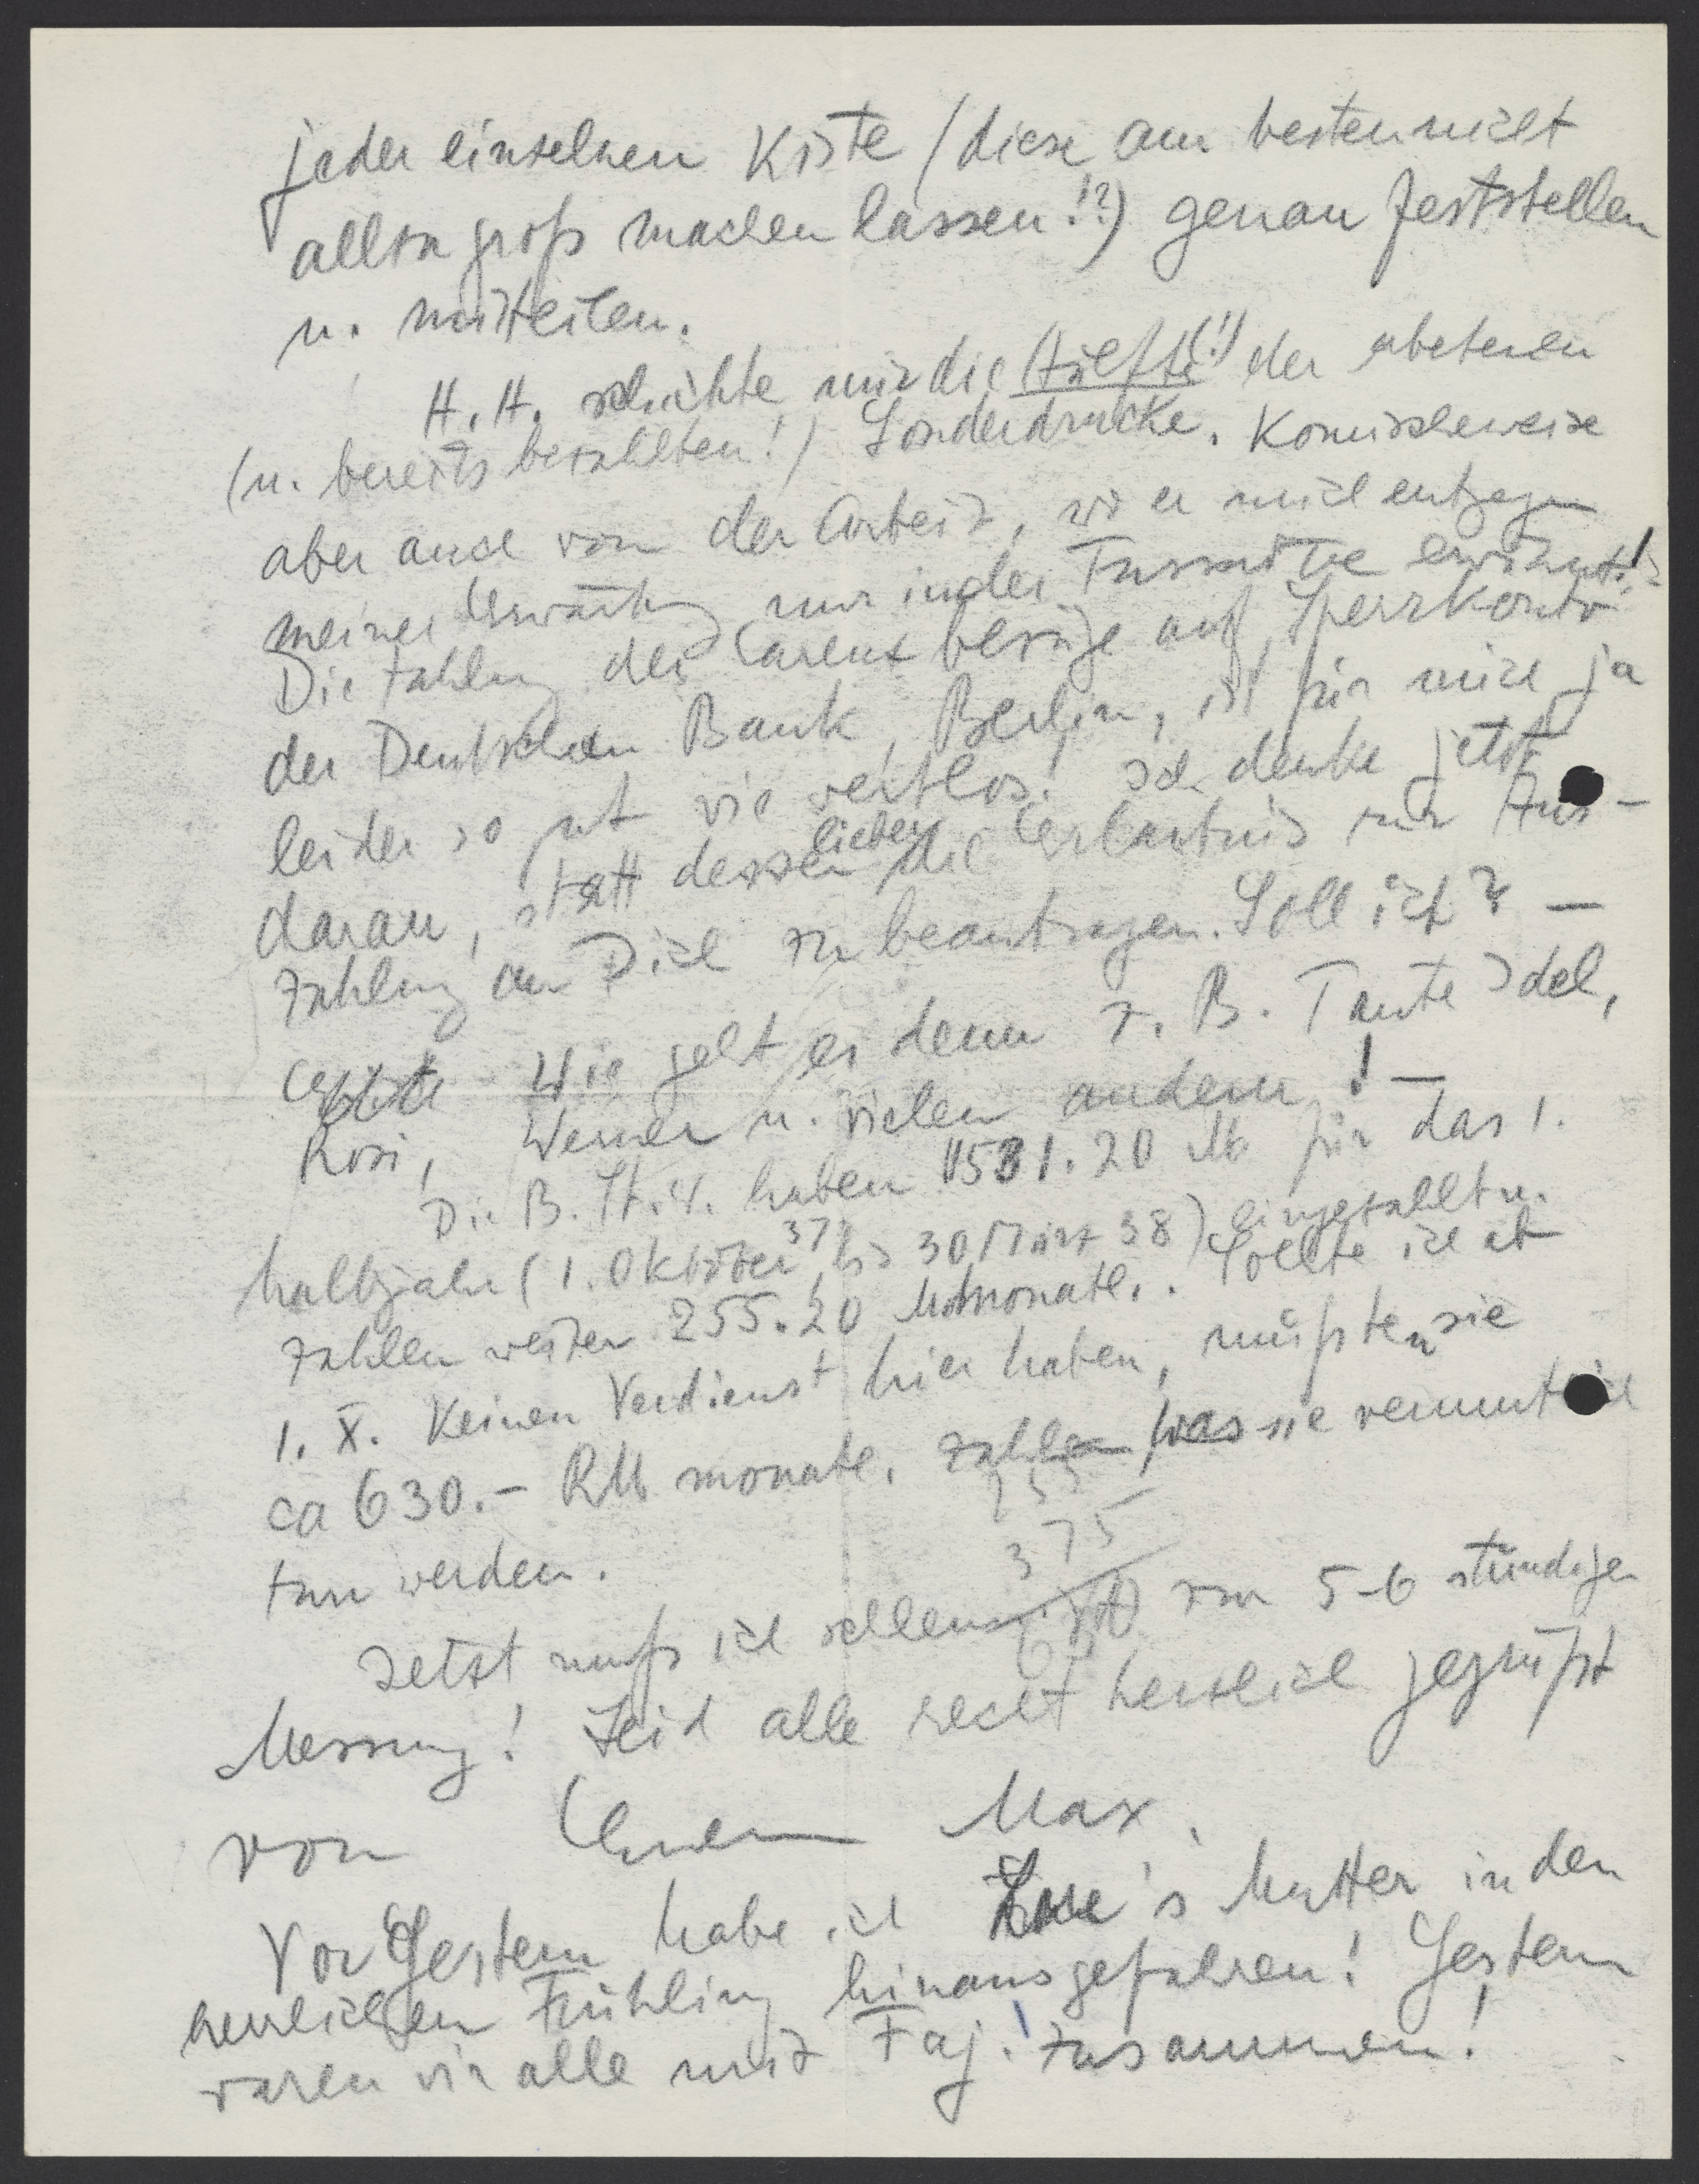 jeder einzelnen Kiste (diese am besten nicht
allzu groß machen lassen!?) genau feststellen
u. mitteilen.
H. H. schickte mir die Hälfte (!) der gebetenen
(u. bereits bezahlten!) Sonderdrucke. Komischerweise
aber auch von der Arbeit, wo er mich entgegen
meiner Erwartung nur in der Fussnote erwähnt!
Die Zahlung der Bezüge auf Sperrkonto
der Deutschen Bank, Berlin, ist für mich ja
leider so gut wie wertlos! Ich denke jetzt
daran, statt dessen lieber die Erlaubnis zur Aus-
zahlung an Dich zu beantragen. Soll ich? —
Wie geht es denn z. B. Tante Idel,
Rosi, Werner u. vielen andern! —
Die B. St. V. haben 1531.20 M für das 1.
halbjahr (1. Oktober 37 bis 30 März 38) eingezahlt u.
zahlen weiter 255.20 M monatl. Sollte ich ab
1. X. Keinen Verdienst hier haben, müßten sie
ca 630.- RM monatl. zahlen, was sie vermutlich
tun werden.
255
375
630
Jetzt muß ich schleunigst zur 5-6 stündigen
Messung! Seid alle recht herzlich gegrüßt
von Eurem Max.
Vorgestern habe ich 's Mutter in den
herrlichen Frühling hinausgefahren! Gestern
waren wir alle mit Faj. zusammen!